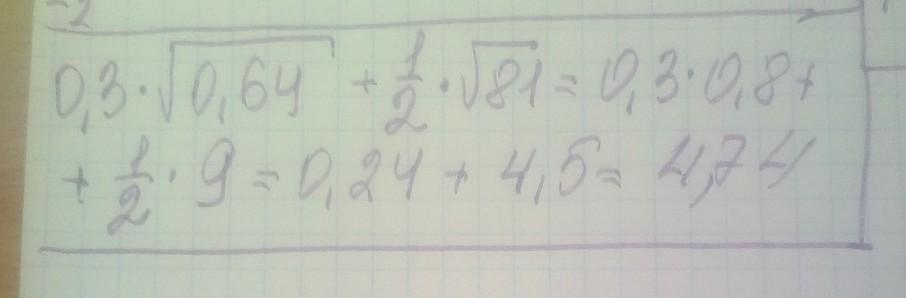 -2
0,3·√0,64 + 1/2·√81 = 0,3·0,8+
+ 1/2·9 = 0,24 + 4,5 = 4,74